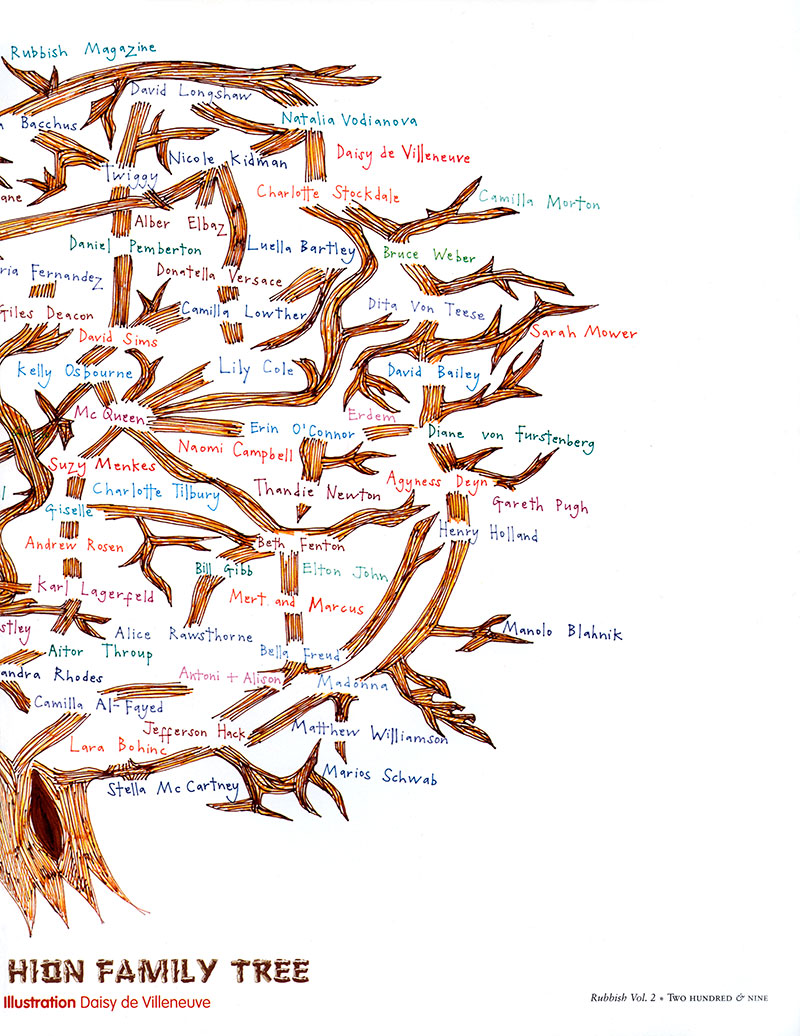 Rubbish Magazine
David Longshaw
a Bacchus
Natalia Vodianova
Nicole Kidman
Daisy de Villeneuve
Twiggy
ane
Charlotte Stockdale
Camilla Morton
Alber Elbaz
Daniel Pemberton
Luella Bartley
Bruce Weber
ria Fernandez
Donatella Versace
Giles Deacon
Camilla Lowther
Dita Von Teese
David Sims
Sarah Mower
Kelly Osbourne
Lily Cole
David Bailey
McQueen
Erdem
Erin O'Connor
Diane von Furstenberg
Naomi Campbell
Suzy Menkes
Agyness Deyn
l
Charlotte Tilbury
Thandie Newton
Gareth Pugh
Giselle
Henry Holland
Andrew Rosen
Beth Fenton
Bill Gibb
Elton John
Karl Lagerfeld
Mert and Marcus
stley
Alice Rawsthorne
Manolo Blahnik
Aitor Throup
Bella Freud
andra Rhodes
Antoni + Alison
Madonna
Camilla Al-Fayed
Jefferson Hack
Matthew Williamson
Lara Bohinc
Stella McCartney
Marios Schwab
HION FAMILY TREE
Illustration Daisy de Villeneuve
Rubbish Vol. 2 • Two hundred & nine